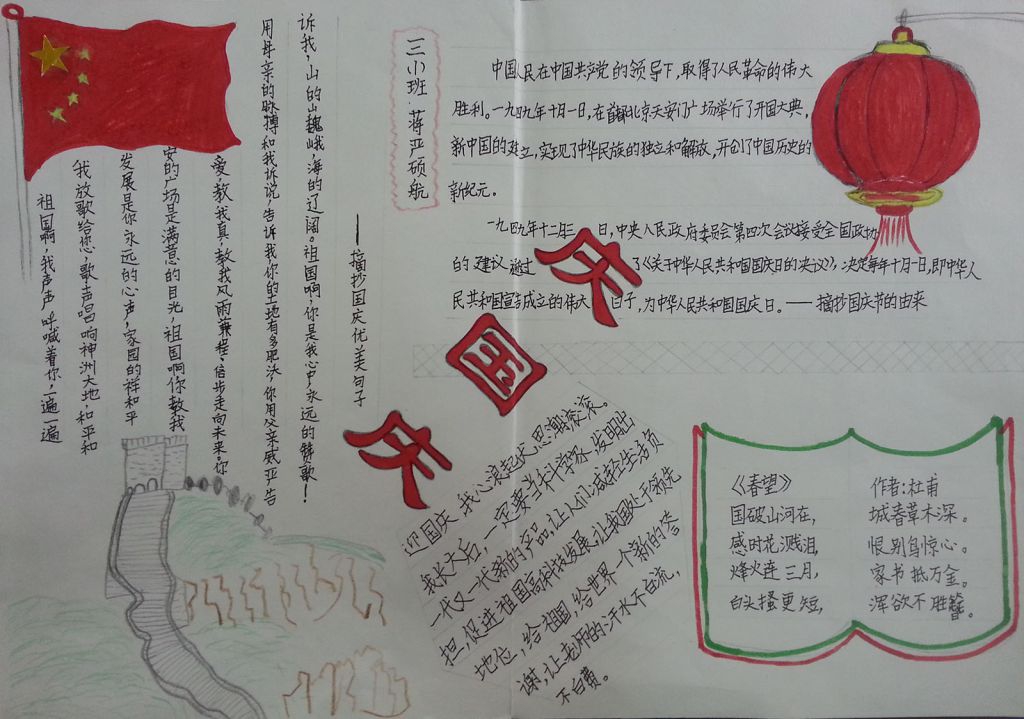 祖国啊,我声声呼喊着你,一遍一遍
我放歌给您,歌声唱响神洲大地,和平和
发展是你永远的心声,家园的祥和平
安的广场是满意的目光,祖国啊你教我
爱,教我真,教我风雨兼程、信步走向未来。你
用母亲的脉搏和我诉说,告诉我,你的土地有多肥沃,你用父亲威严告
诉我,山的山巍峨,海的辽阔。祖国啊,你是我心声永远的赞歌!
——摘抄国庆优美句子
三小班·蒋严硕航
中国人民在中国共产党的领导下,取得了人民革命的伟大
胜利。一九四九年十月一日,在首都北京天安门广场举行了开国大典,
新中国的建立,实现了中华民族的独立和解放,开创了中国历史的
新纪元。
一九四九年十二月 日,中央人民政府委员会第四次会议接受全国政协
的建议通过 了《关于中华人民共和国国庆日的决议》,决定每年十月一日,即中华人
民共和国宣告成立的伟大 日子,为中华人民共和国国庆日。——摘抄国庆节的由来
庆
国
庆
迎国庆,我心浪起伏,思潮滚滚。
我长大后,一定要当科学家,发明出
一代又一代新的产品,让人们减轻生活负
担,促进祖国高科技发展,让我国处于领先
地位,给祖国,给世界一个新的答
谢,让老师的汗水不白流,
不白费。
《春望》 作者:杜甫
国破山河在, 城春草木深。
感时花溅泪, 恨别鸟惊心。
烽火连三月, 家书抵万金。
白头搔更短, 浑欲不胜簪。